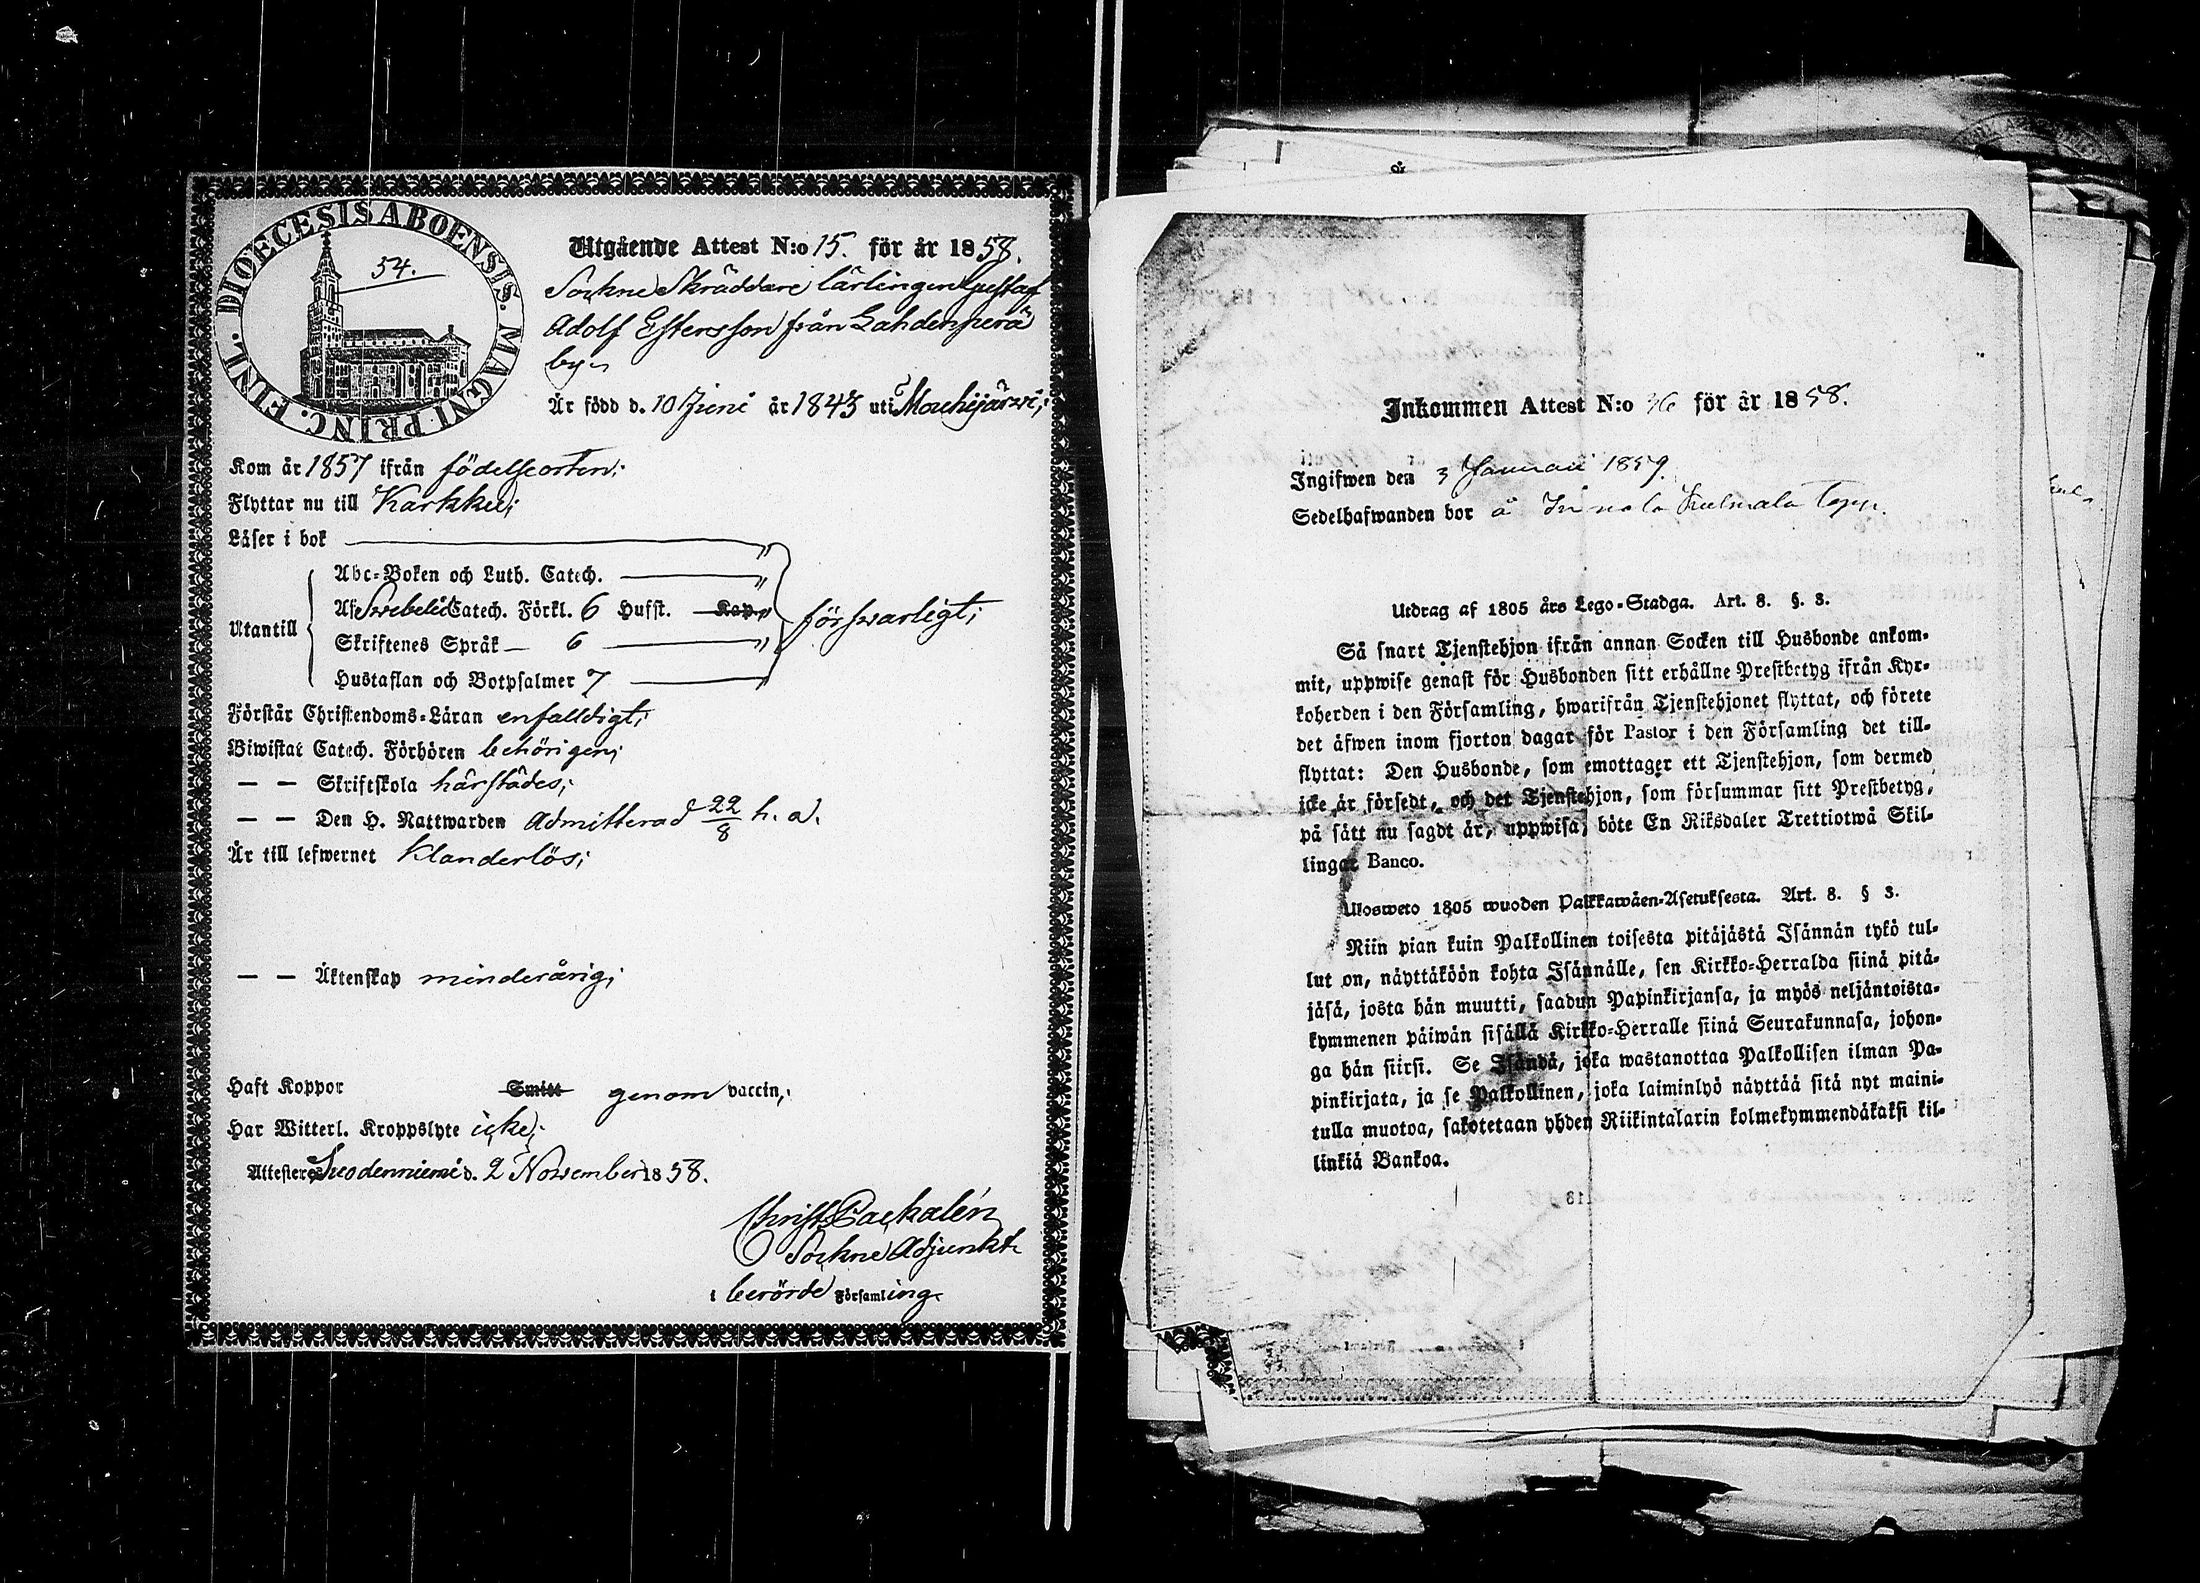 DIOECESIS ABOENSIS. MAGNI PRINC. FINL.
54.
Utgående Attest N:o 15. för år 1858.
Sockne Skräddare lärlingen Gustaf
Adolf Estersson från Lahdenperä
by
Är född d. 10 Juni år 1843 uti Mouhijärwi;
Kom år 1857 ifrån födelseorten;
Flyttar nu till Karkku;
Läser i bok
Abc-Boken och Luth. Catech.
Af Swebelii Catech. Förkl. 6 Hufst. Kap.
Utantill
försvarligt;
Skriftenes Språk 6
Hustaflan och Botpsalmer 7
Förstår Christendoms-Läran enfalldigt;
Biwistat Catech. Förhören behörigen;
— — Skriftskola härstädes;
— — Den H. Nattwarden Admitterad 22/8 h. a.
Är till lefwernet klanderlös;
— — Äktenskap minderårig;
Haft Koppor Smitt genom vaccin;
Har Witterl. Kroppslyte icke;
Attesteres Suodenniemi d. 2 November 1858.
Christ Packalén
Sockne Adjunkt
i berörde Församling
Inkommen Attest N:o 36 för år 1858.
Ingifwen den 3 Januari 1859.
Sedelhafwanden bor å
Utdrag af 1805 års Lego-Stadga. Art. 8. §. 3.
Så snart Tjenstehjon ifrån annan Socken till Husbonde ankom-
mit, uppwise genast för Husbonden sitt erhållne Prestbetyg ifrån Kyr-
koherden i den Församling, hwarifrån Tjenstehjonet flyttat, och förete
det äfwen inom fjorton dagar för Pastor i den Församling det till-
flyttat: Den Husbonde, som emottager ett Tjenstehjon, som dermed
icke är försedt, och det Tjenstehjon, som försummar sitt Prestbetyg,
på sätt nu sagdt är, uppwisa, böte En Riksdaler Trettiotwå Skil-
lingar Banco.
Ulosweto 1805 wuoden Palkkawäen-Asetuksesta. Art. 8. § 3.
Niin pian kuin Palkollinen toisesta pitäjästä Isännän tykö tul-
lut on, näyttäköön kohta Isännälle, sen Kirkko-Herralda siinä pitä-
jäsä, josta hän muutti, saadun Papinkirjansa, ja myös neljäntoista-
kymmenen päiwän sisällä Kirkko-Herralle siinä Seurakunnasa, johon-
ga hän siirsi. Se Isändä, joka wastanottaa Palkollisen ilman Pa-
pinkirjata, ja se Palkollinen, joka laiminlyö näyttää sitä nyt maini-
tulla muotoa, sakotetaan yhden Riikintalarin kolmekymmendäkaksi kil-
linkiä Bankoa.